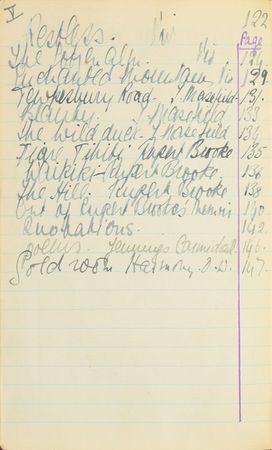 V
Restless. Viv 122
Page
The Viv 124.
Enchanted Mountain Viv 129.
Tewkesbury Road. J Masefield. 131.
Beauty. J Masefield 133
The wild duck. J Masefield 134
Tiare Tahiti Rupert Brooke 135
Waikiki Rupert Brooke. 138
The Hill. Rupert Brooke 138
Out of Rupert Brooke's Memoir 140
Quotations. 142.
poems. Jennings Carmichael. 146.
Gold room Harmony. 147.